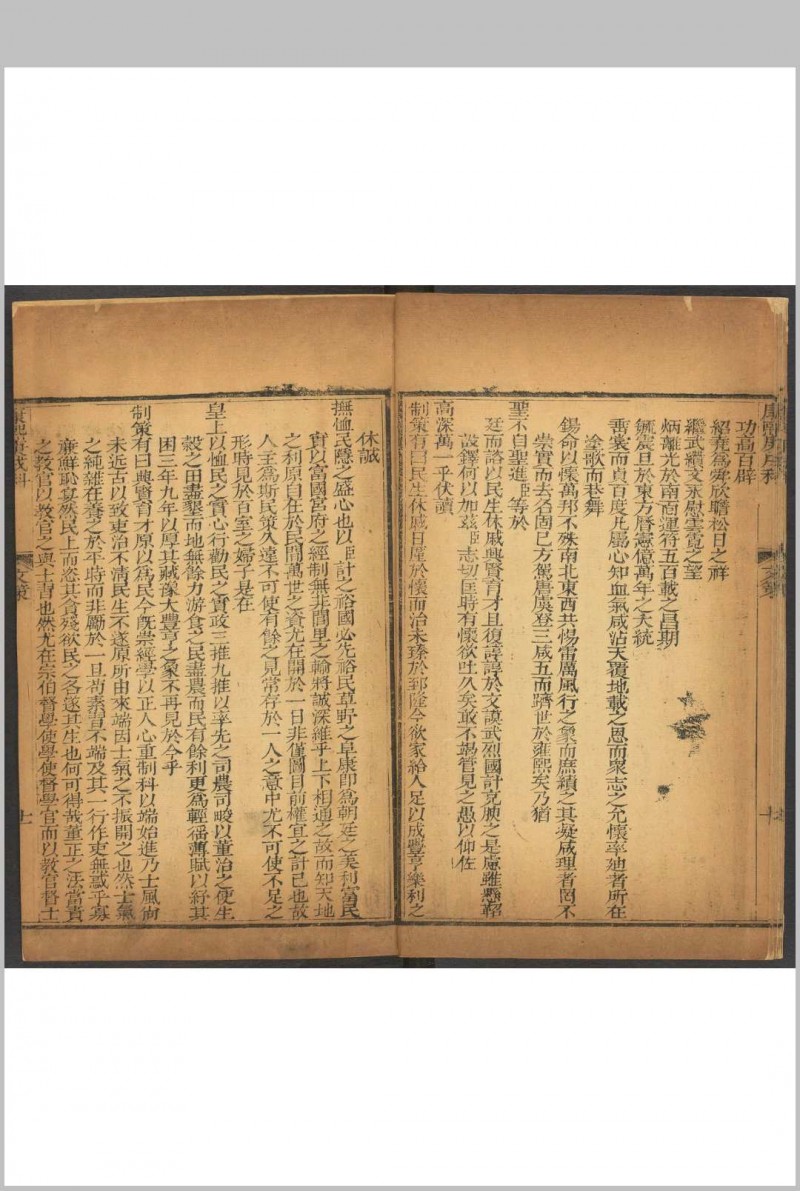 功高百辟
紹堯爲舜欣瞻松日之祥
繼武纘文永慰雲霓之望
炳離光於南面運符五百載之昌期
毓震旦於東方曆憲億萬年之大統
垂裳而貞百度凡屬心知血氣咸沾天覆地載之恩而衆志之允懷率廸者所在
塗歌而巷舞
錫命以懷萬邦不殊南北東西共惕雷厲風行之象而庶績之其凝咸理者罔不
崇實而去名固已方駕唐虞登三咸五而躋世於雍熙矣乃猶
聖不自聖進臣等於
廷而諮以民生休戚興賢育才且復諄諄於文謨武烈國計克腴之是慮雖懸鞀
設鐸何以加茲臣志切匡時有懷欲吐久矣敢不竭管見之愚以仰佐
高深萬一乎伏讀
制策有曰民生休戚日厪於懷而治未臻於郅隆今欲家給人足以成豐亨樂利之
休誠
撫恤民隱之盛心也以臣計之裕國必先裕民草野之阜康卽爲朝廷之美利富民
實以富國宮府之經制無非閭里之輸將誠深維乎上下相通之故而知天地
之利原自在於民間萬世之資尤在開於一日非僅圖目前權宜之計已也故
人主爲斯民策久遠不可使有餘之見常存於一人之意中尤不可使不足之
形時見於百室之婦子是在
皇上以恤民之實心行勸民之實政三推九推以率先之司農司畯以董治之使生
穀之田盡墾而地無餘力游食之民盡農而民有餘利更爲輕徭薄賦以紓其
困三年九年以厚其藏豫大豐亨之象不再見於今乎
制策有曰興賢育才原以爲民今旣崇經學以正人心重制科以端始進乃士風尙
未近古以致吏治不清民生不遂原所由來端因士氣之不振開之也然士氣
之純雜在養之於平時而非勵於一旦苟素習不端及其一行作吏無惑乎寡
廉鮮恥宴然民上而恣其貪殘欲民之各遂其生也何可得哉董正之法當責
之教官以教官之與士習也然尤在宗伯督學使學使督學官而以教官督士